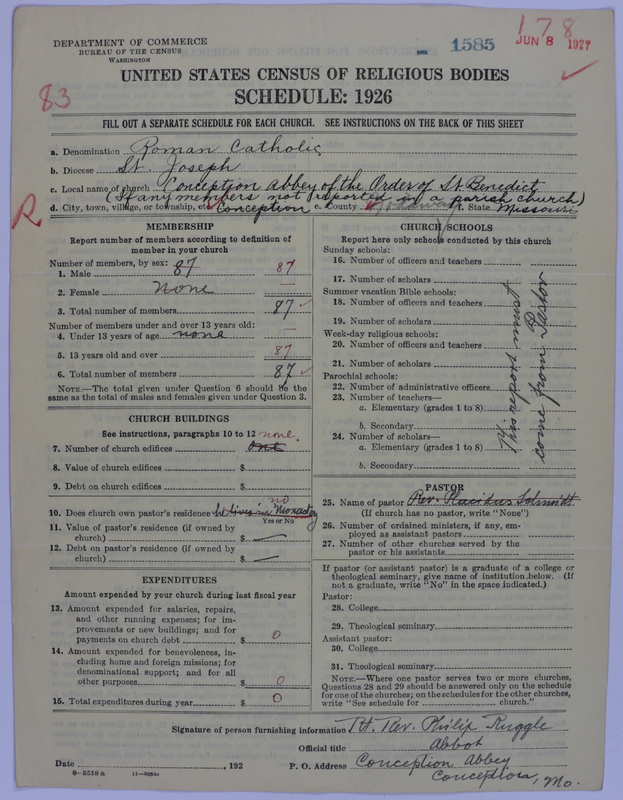 178
DEPARTMENT OF COMMERCE
BUREAU OF THE CENSUS
WASHINGTON
1585
JUN 8 1927
83
UNITED STATES CENSUS OF RELIGIOUS BODIES
SCHEDULE: 1926
FILL OUT A SEPARATE SCHEDULE FOR EACH CHURCH. SEE INSTRUCTIONS ON THE BACK OF THIS SHEET
a. Denomination Roman Catholic
b. Diocese St. Joseph
c. Local name of church Conception Abbey of the Order of St. Benedict
(If any members not reported in a parish church)
R
d. City, town, village, or township, etc. Conception e. County f. State Missouri
MEMBERSHIP
Report number of members according to definition of
member in your church
Number of members, by sex:
1. Male 87 87
2. Female None —
3. Total number of members 87
Number of members under and over 13 years old:
4. Under 13 years of age none —
5. 13 years old and over 87
6. Total number of members 87
NOTE.—The total given under Question 6 should be the
same as the total of males and females given under Question 3.
CHURCH BUILDINGS
See instructions, paragraphs 10 to 12 none
7. Number of church edifices one
8. Value of church edifices $
9. Debt on church edifices $
no
10. Does church own pastor's residence he lives in Monastery
Yes or No
11. Value of pastor's residence (if owned by
church) $ —
12. Debt on pastor's residence (if owned by
church) $ —
EXPENDITURES
Amount expended by your church during last fiscal year
13. Amount expended for salaries, repairs,
and other running expenses; for im-
provements or new buildings; and for
payments on church debt $ 0
14. Amount expended for benevolences, in-
cluding home and foreign missions; for
denominational support; and for all
other purposes $ 0
15. Total expenditures during year $ 0
CHURCH SCHOOLS
Report here only schools conducted by this church
Sunday schools:
16. Number of officers and teachers
17. Number of scholars
Summer vacation Bible schools:
18. Number of officers and teachers
19. Number of scholars
Week-day religious schools:
20. Number of officers and teachers
21. Number of scholars
Parochial schools:
22. Number of administrative officers
23. Number of teachers—
a. Elementary (grades 1 to 8)
b. Secondary
24. Number of scholars—
a. Elementary (grades 1 to 8)
b. Secondary
This report must
come from Pastor
PASTOR
25. Name of pastor Rev. Placidus Schmidt
(If church has no pastor, write "None")
26. Number of ordained ministers, if any, em-
ployed as assistant pastors
27. Number of other churches served by the
pastor or his assistants
If pastor (or assistant pastor) is a graduate of a college or
theological seminary, give name of institution below. (If
not a graduate, write "No" in the space indicated.)
Pastor:
28. College
29. Theological seminary
Assistant pastor:
30. College
31. Theological seminary
NOTE.—Where one pastor serves two or more churches,
Questions 28 and 29 should be answered only on the schedule
for one of the churches; on the schedules for the other churches,
write "See schedule for church."
Signature of person furnishing information Rt. Rev. Philip Ruggle
Official title Abbot
Date , 192 P. O. Address Conception Abbey
8—5518a Conception, Mo.